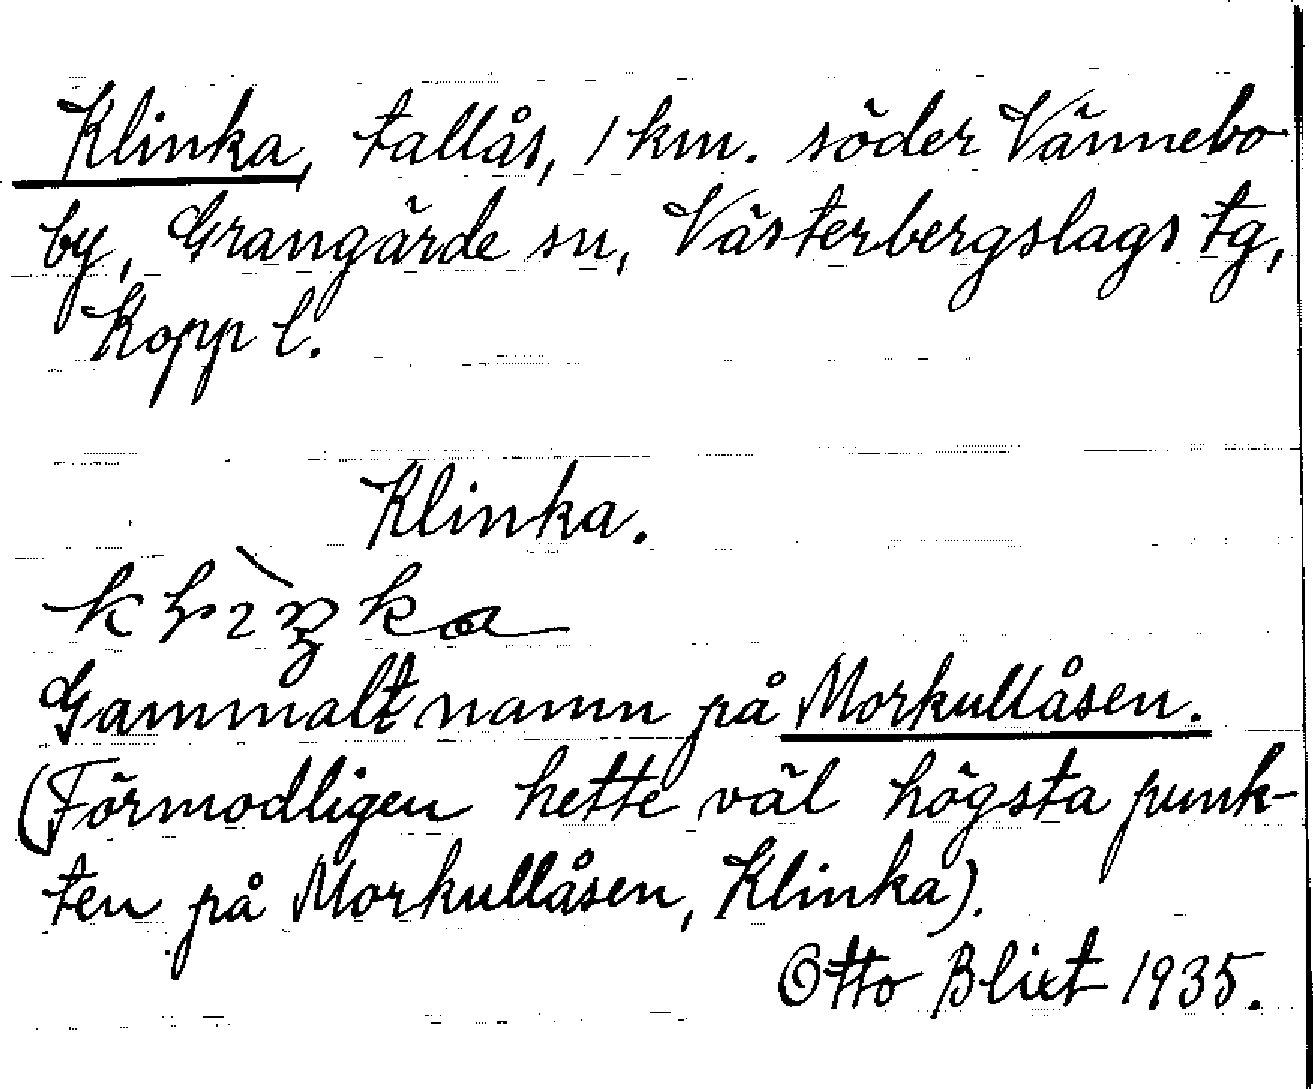 Klinka, tallås, 1 km. söder Vännebo
by, Grangärde sn, Västerbergslags tg,
Kopp l.
Klinka.
Gammalt namn på Morkullåsen.
(Förmodligen hette väl högsta punk-
ten på Morkullåsen, Klinka).
Otto Blixt 1935.